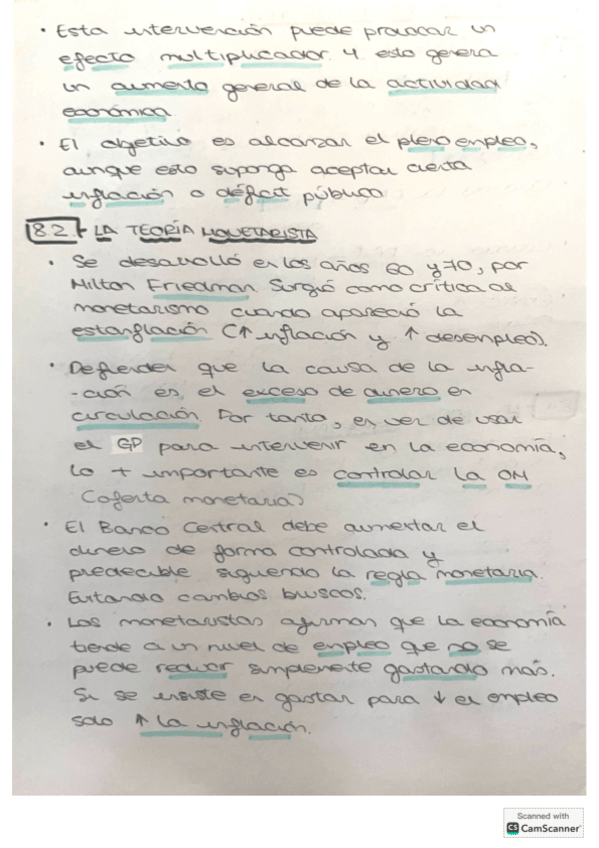 · Esta intervención puede provocar un
efecto multiplicador y esto genera
un aumento general de la actividad
económica
· El objetivo es alcanzar el pleno empleo,
aunque esto suponga aceptar cierta
inflación o déficit público
8.2 - LA TEORÍA MONETARISTA
· Se desarrolló en los años 60 y 70, por
Milton Friedman. Surgió como crítica al
monetarismo cuando apareció la
estanflación (↑ inflación y ↑ desempleo).
· Defienden que la causa de la infla-
-ción es el exceso de dinero en
circulación. Por tanto, en vez de usar
el GP para intervenir en la economía,
lo + importante es controlar la OM
(oferta monetaria)
· El Banco Central debe aumentar el
dinero de forma controlada y
predecible siguiendo la regla monetaria.
Evitando cambios bruscos.
· Los monetaristas afirman que la economía
tiende a un nivel de empleo que no se
puede reducir simplemente gastando más.
Si se insiste en gastar para ↓ el empleo
solo ↑ la inflación.
Scanned with
CS CamScanner